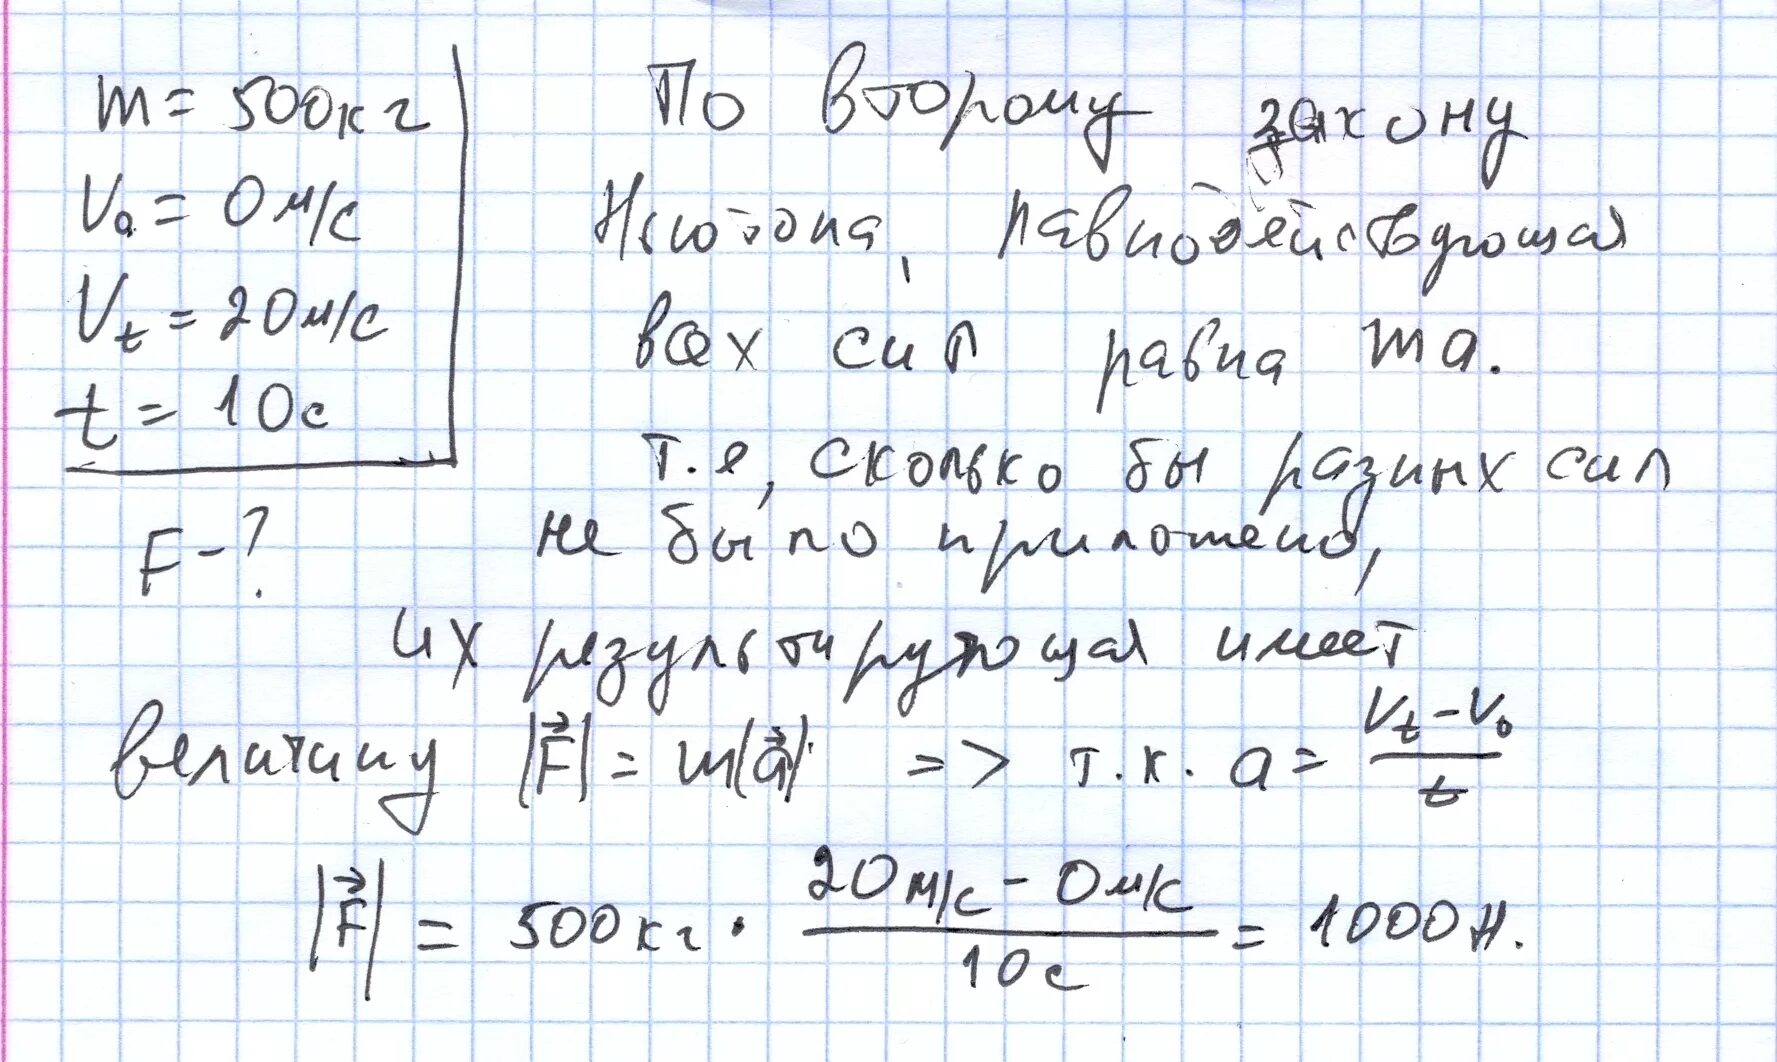 m = 500кг
V₀ = 0м/с
Vₜ = 20м/с
t = 10с
F - ?
По второму закону
Ньютона, равнодействующая
всех сил равна ma.
т.е, сколько бы разных сил
не было приложено,
их результирующая имеет
величину |F⃗| = m|a⃗| => т.к. a = (Vₜ - V₀)/t
|F⃗| = 500кг · (20м/с - 0м/с)/10с = 1000Н.